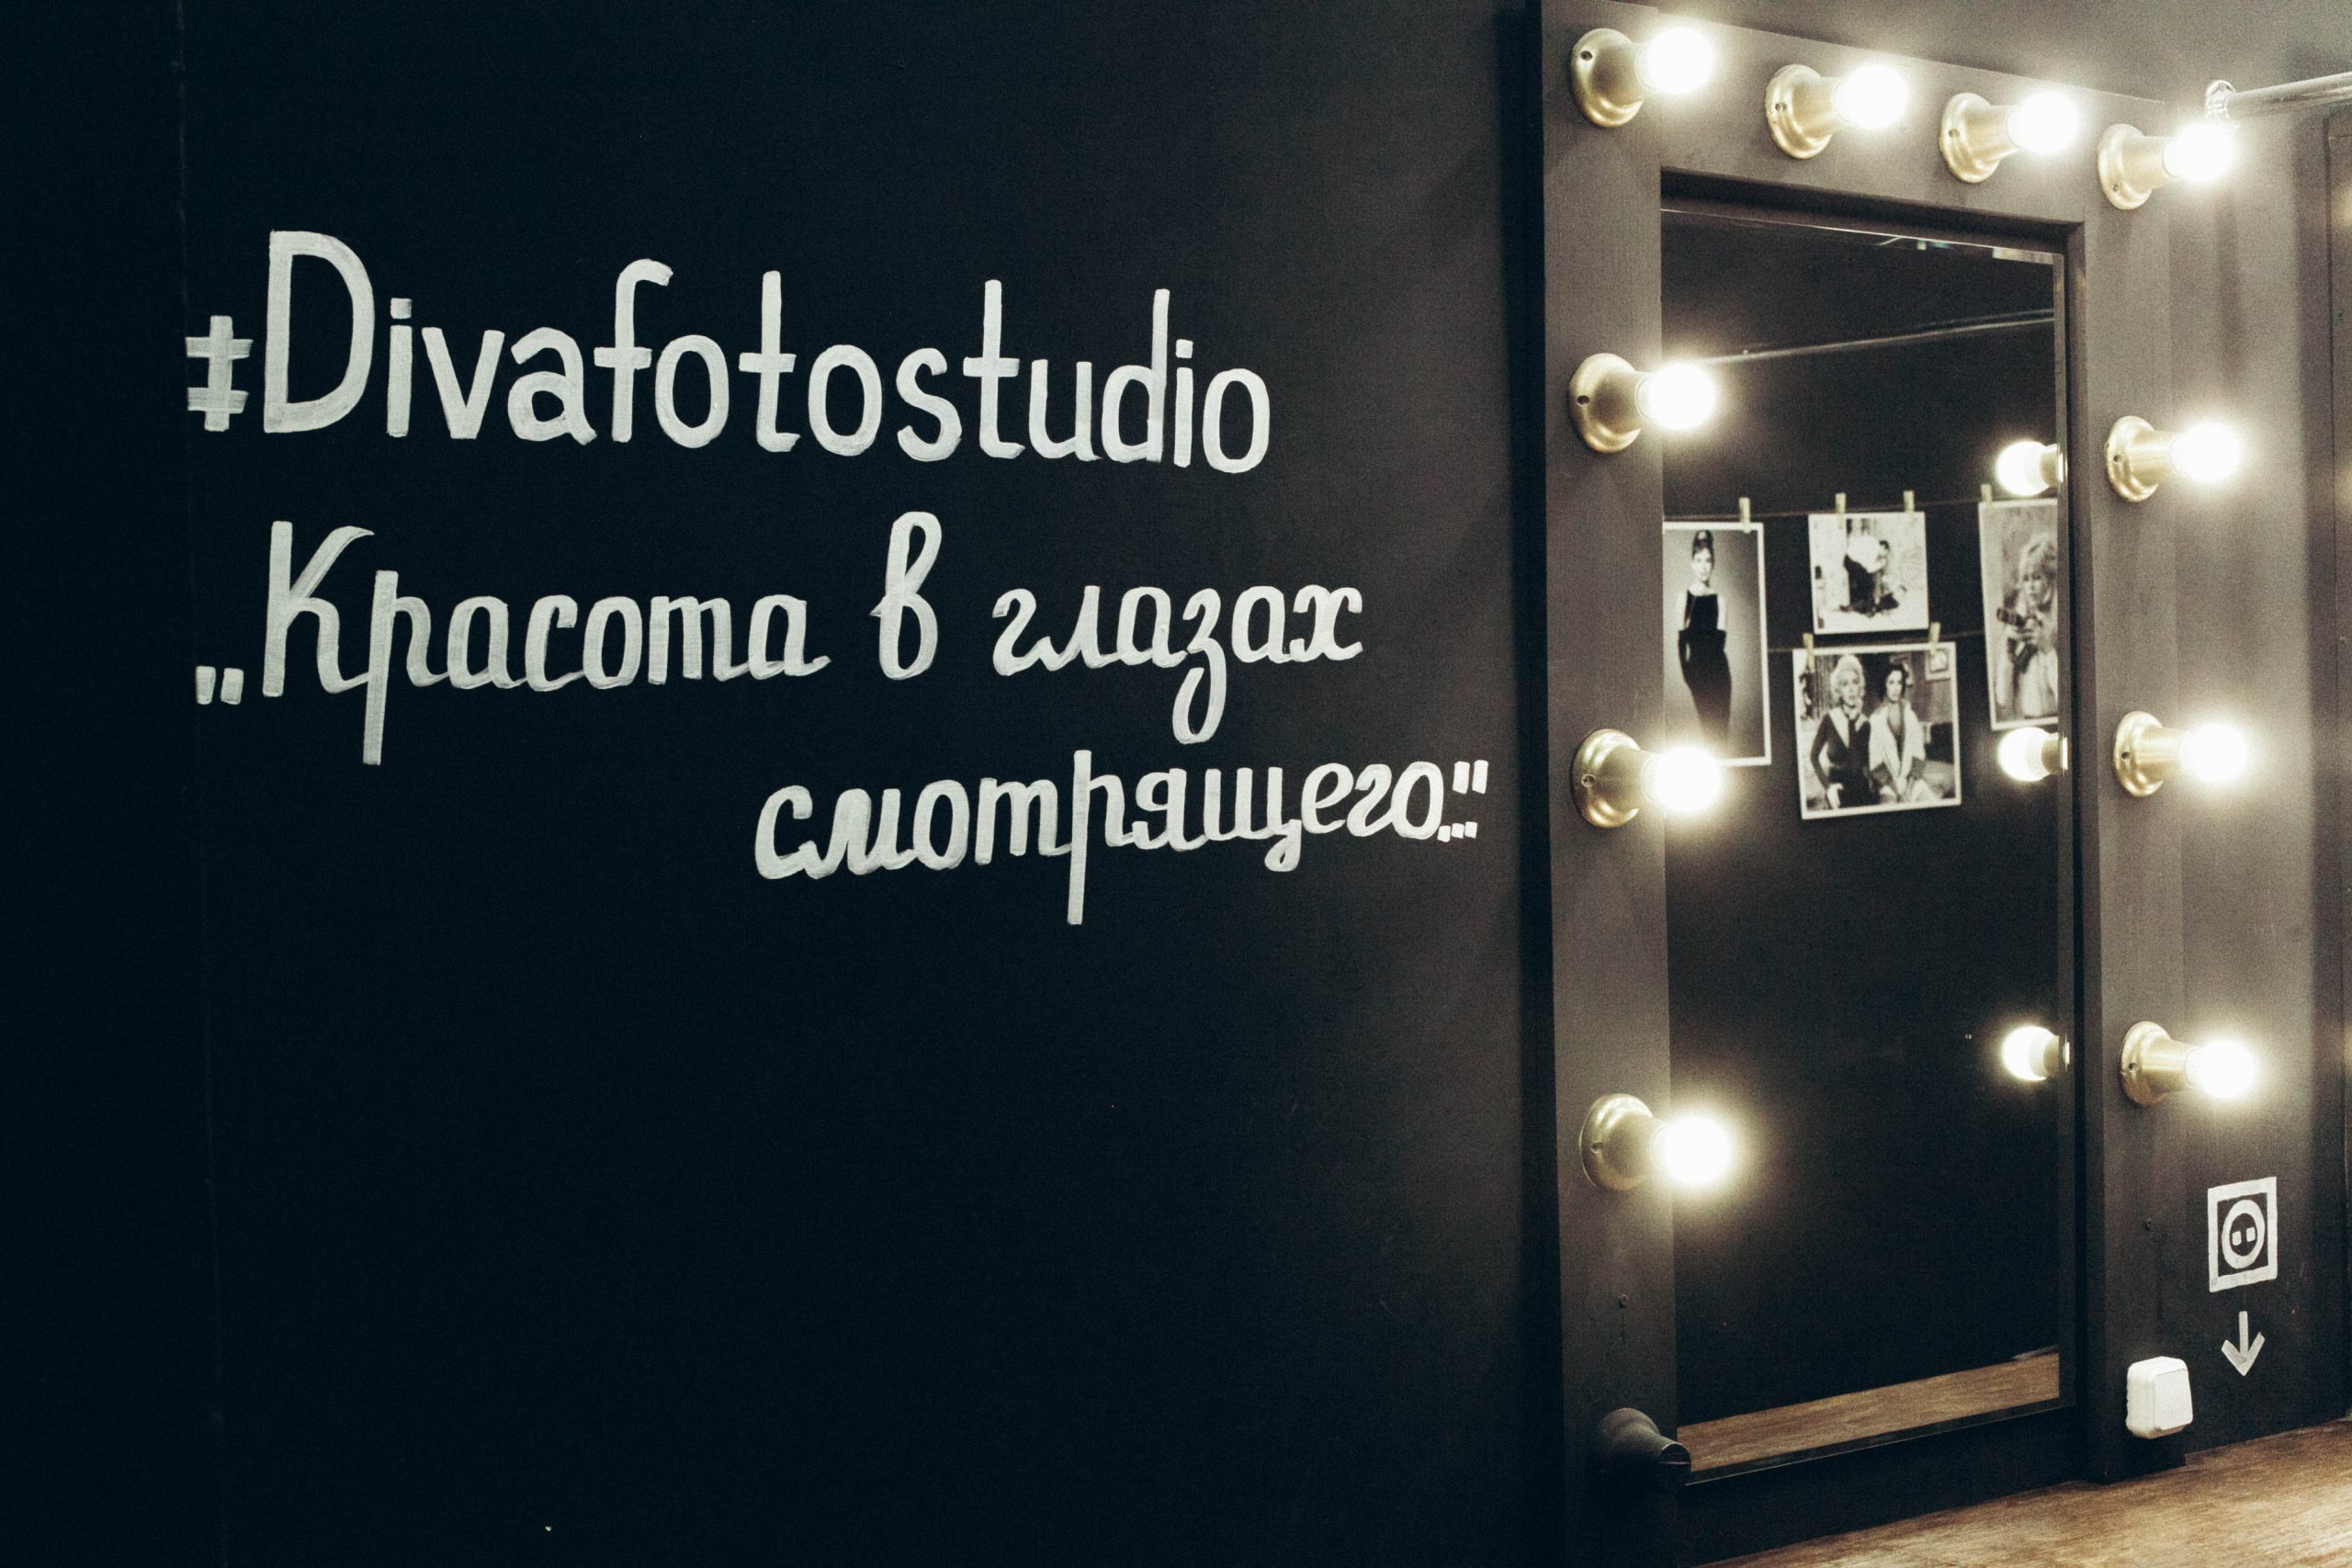 #Divafotostudio
„Красота в глазах
смотрящего..."